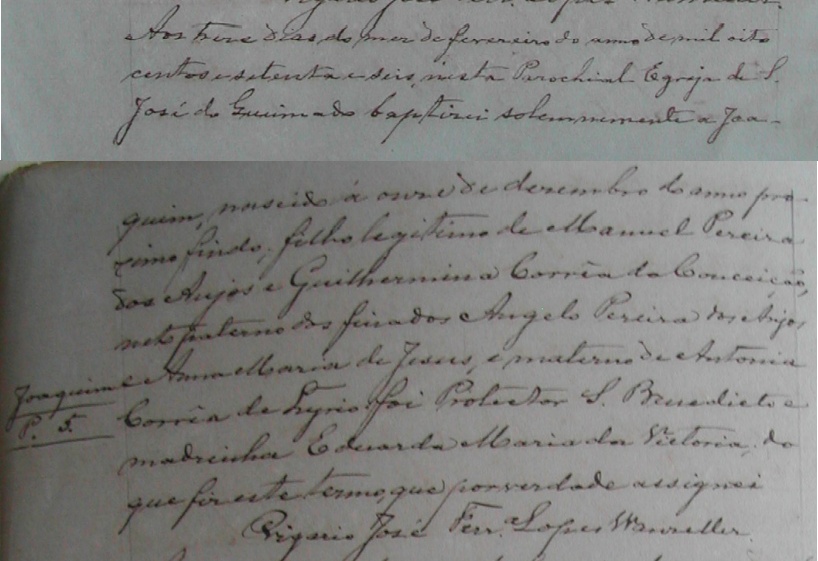 Aos treze dias do mez de fevereiro do anno de mil oito
centos e setenta e seis, nesta Parochial Egreja de S.
José do Queimado baptizei solemnemente a Joa-
quim, nascido á onze de dezembro do anno pro-
ximo findo, filho legitimo de Manuel Pereira
dos Anjos e Guilhermina Corrêa da Conceição,
neto paterno dos finados Angelo Pereira dos Anjos
e Anna Maria de Jesus, e materno de Antonia
Joaquim
P. F.
Corrêa de Lyrio: foi Protector S. Benedicto e
madrinha Eduarda Maria da Victoria, do
que fiz este termo, que por verdade assignei
Vigario José Ferr.ª Lopes